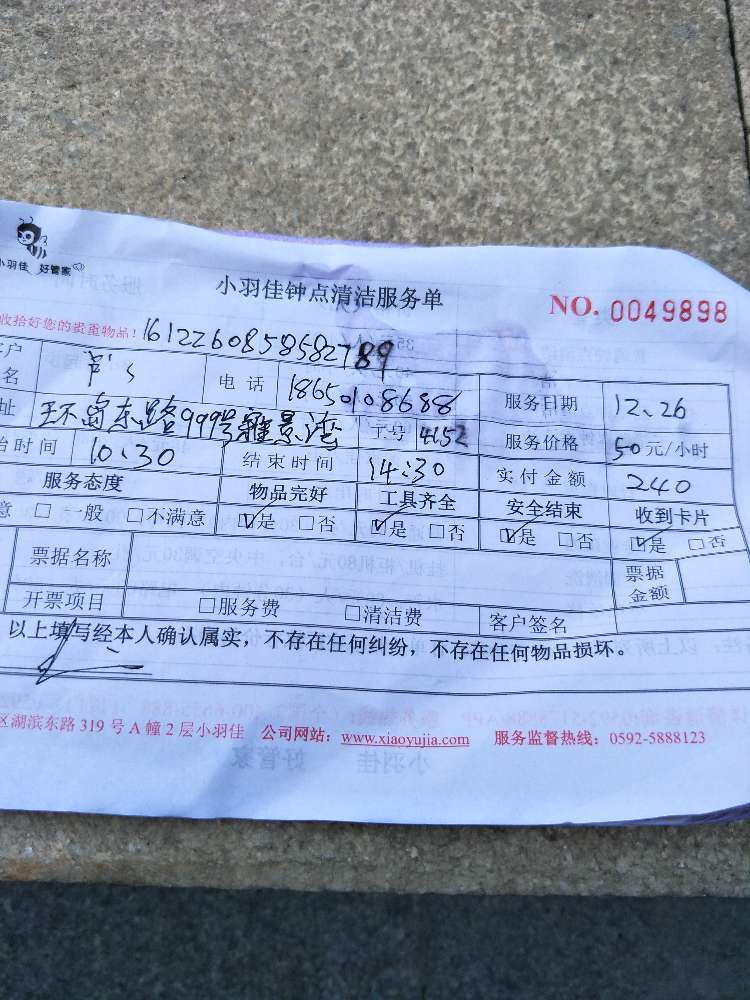 小羽佳 好管家
小羽佳钟点清洁服务单
NO. 0049898
收拾好您的贵重物品! 16122608585827889
客户名 电话 18650108688 服务日期 12.26
址 环岛东路999号雅景湾 工号 4152 服务价格 50元/小时
始时间 10:30 结束时间 14:30 实付金额 240
服务态度 物品完好 工具齐全 安全结束 收到卡片
意 □一般 □不满意 ☑是 □否 ☑是 □否 ☑是 □否 ☑是 □否
票据名称 票据金额
开票项目 □服务费 □清洁费 客户签名
以上填写经本人确认属实，不存在任何纠纷，不存在任何物品损坏。
区湖滨东路319号A幢2层小羽佳 公司网站：www.xiaoyujia.com 服务监督热线：0592-5888123